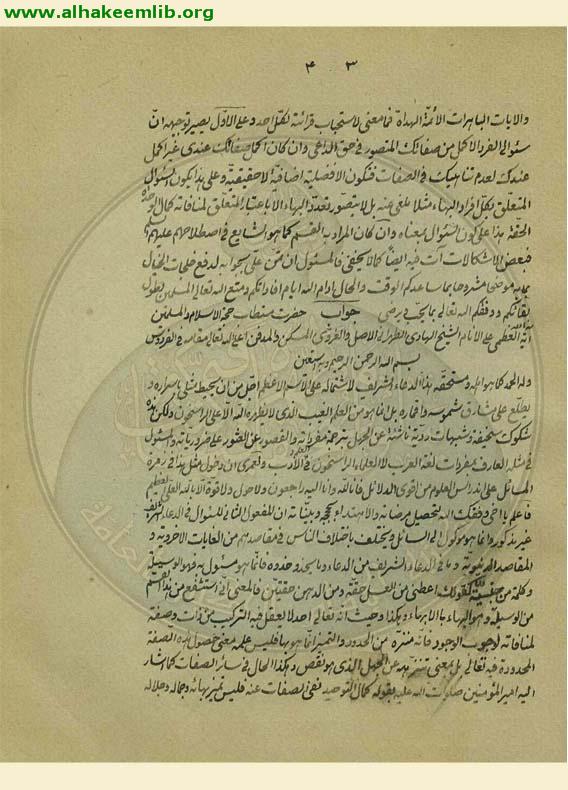 www.alhakeemlib.org
٣ ٤
والايات الباهرات الائمة الهداة فما معنى لاستحباب قرائته لكل احد وعلى الاول يصير توجيهه ان
سئوالى الفرد الاكمل من صفاتك المتصور فى حق الداعى وان كان اكمل صفاتك عندى غير اكمل
عندك لعدم تناهيك فى الصفات فتكون الافضلية اضافية لا حقيقية وعلى هذا يكون السئوال
المتعلق بكل افراد البهاء مثلا ملغى عنه بل لا يتصور تعدد البهاء الا باعتبار المتعلق لمنافاته كمال الوحدة
الحقة هذا على كون السئوال بمعناه وان كان المراد به القسم كما هو الشايع فى اصطلاحاتهم عليهم
فبعض الاشكالات آت فيه ايضا كما لا يخفى فالمسئول ان تمن على بجوابه لدفع
مشروحا بما ساعدكم الوقت والحال ادام الله ايام افاداتكم ومتع الله تعالى المسلمين بطول
بقائكم ووفقكم الله تعالى بما يحب ويرضى جواب حضرت مستطاب حجة الاسلام والمسلمين
آية الله العظمى على الانام الشيخ الهادى الطهرانى الاصل والغروى المسكن والمدفن اعلى الله تعالى مقامه فى الفردوس
بسم الله الرحمن الرحيم وبه نستعين
وله الحمد كما هو اهله ومستحقه هذا الدعاء الشريف لاشتماله على الاسم الاعظم اجل من ان يحيط مثلى باسراره و
يطلع على مشارق شموسه واقماره بل انما هو من العلم الغيب الذى لا يظهره الله الا على الراسخون ولكن هذه
شكوك سخيفة وشبهات ردية ناشئة عن الجهل بترجمة مفرداته والقصور عن العثور على ضرورياته والمسئول
فى مثله العارف بمفردات لغة العرب لا العلماء الراسخون فى العلم والادب ولعمرى ان دخول مثل هذا فى زمرة
المسائل على اندراس العلوم من اقوى الدلائل فانا لله وانا اليه راجعون ولا حول ولا قوة الا بالله العلى العظيم
فاعلم يا اخى وفقك الله لتحصيل مرضاته والاهتداء بحججه وبيناته ان المفعول الثانى للسئوال فى الدعاء الشريف
غير مذكور وانما هو موكول الى السائل ويختلف باختلاف الناس فى مقاصدهم من الغايات الاخروية و
المقاصد الدنيوية وما فى الدعاء الشريف من الدعاء وما يحذو حذوه فانما هو مسئول به فهو الوسيلة
وكلمة من جنسية كقولك اعطنى من العسل حقة ومن الدهن حقتين فالمعنى انى استشفع من هذا القسم
من الوسيلة وهو البهاء بالابهاء وهكذا وحيث انه تعالى احد لا يعقل فيه التركيب من ذات وصفة
لمنافاته لوجوب الوجود فانه منزه عن الحدود والتميز انما هو بها فليس علمه معنى حصول هذه الصفة
المحدودة فيه تعالى بل بمعنى تنزهه عن الجهل الذى هو نقص وهكذا الحال فى سائر الصفات كما اشار
اليه امير المؤمنين صلوات الله عليه بقوله كمال التوحيد نفى الصفات عنه فليس تميز بهائه وجماله وجلاله